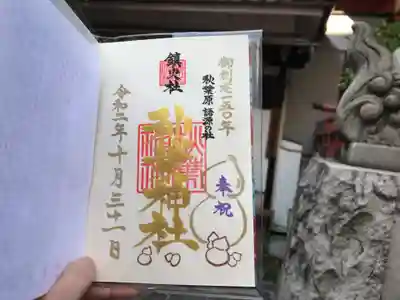 御創建一五〇年
秋葉原 語源の社
奉祝
鎮火社
秋葉神社
令和二年十月三十一日